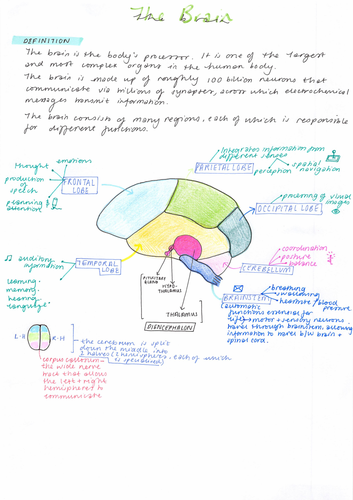 The Brain
DEFINITION
The brain is the body's processor. It is one of the largest
and most complex organs in the human body.
The brain is made up of roughly 100 billion neurons that
communicate via trillions of synapses, across which electrochemical
messages transmit information.
The brain consist of many regions, each of which is responsible
for different functions.
emotions
thought
production of
speech
planning
attention
FRONTAL
LOBE
integrates information from
different senses
spatial
navigation
PARIETAL LOBE
processing of visual
images
OCCIPITAL LOBE
coordination
posture
balance
CEREBELLUM
auditory
information
learning
memory
hearing
language
TEMPORAL
LOBE
PITUITARY
GLAND
HYPO-
THALAMUS
THALAMUS
DIENCEPHALON
breathing
swallowing
heartrate / blood
pressure
BRAINSTEM
(automatic
functions essential for
life) → motor + sensory neurons
travel through brainstem allowing
information to travel b/w brain +
spinal cord.
L-H
R-H
the cerebrum is split
down the middle into
2 halves (hemispheres), each of which
is specialized
corpus callosum
the wide nerve
tract that allows
the left + right
hemispheres to
communicate